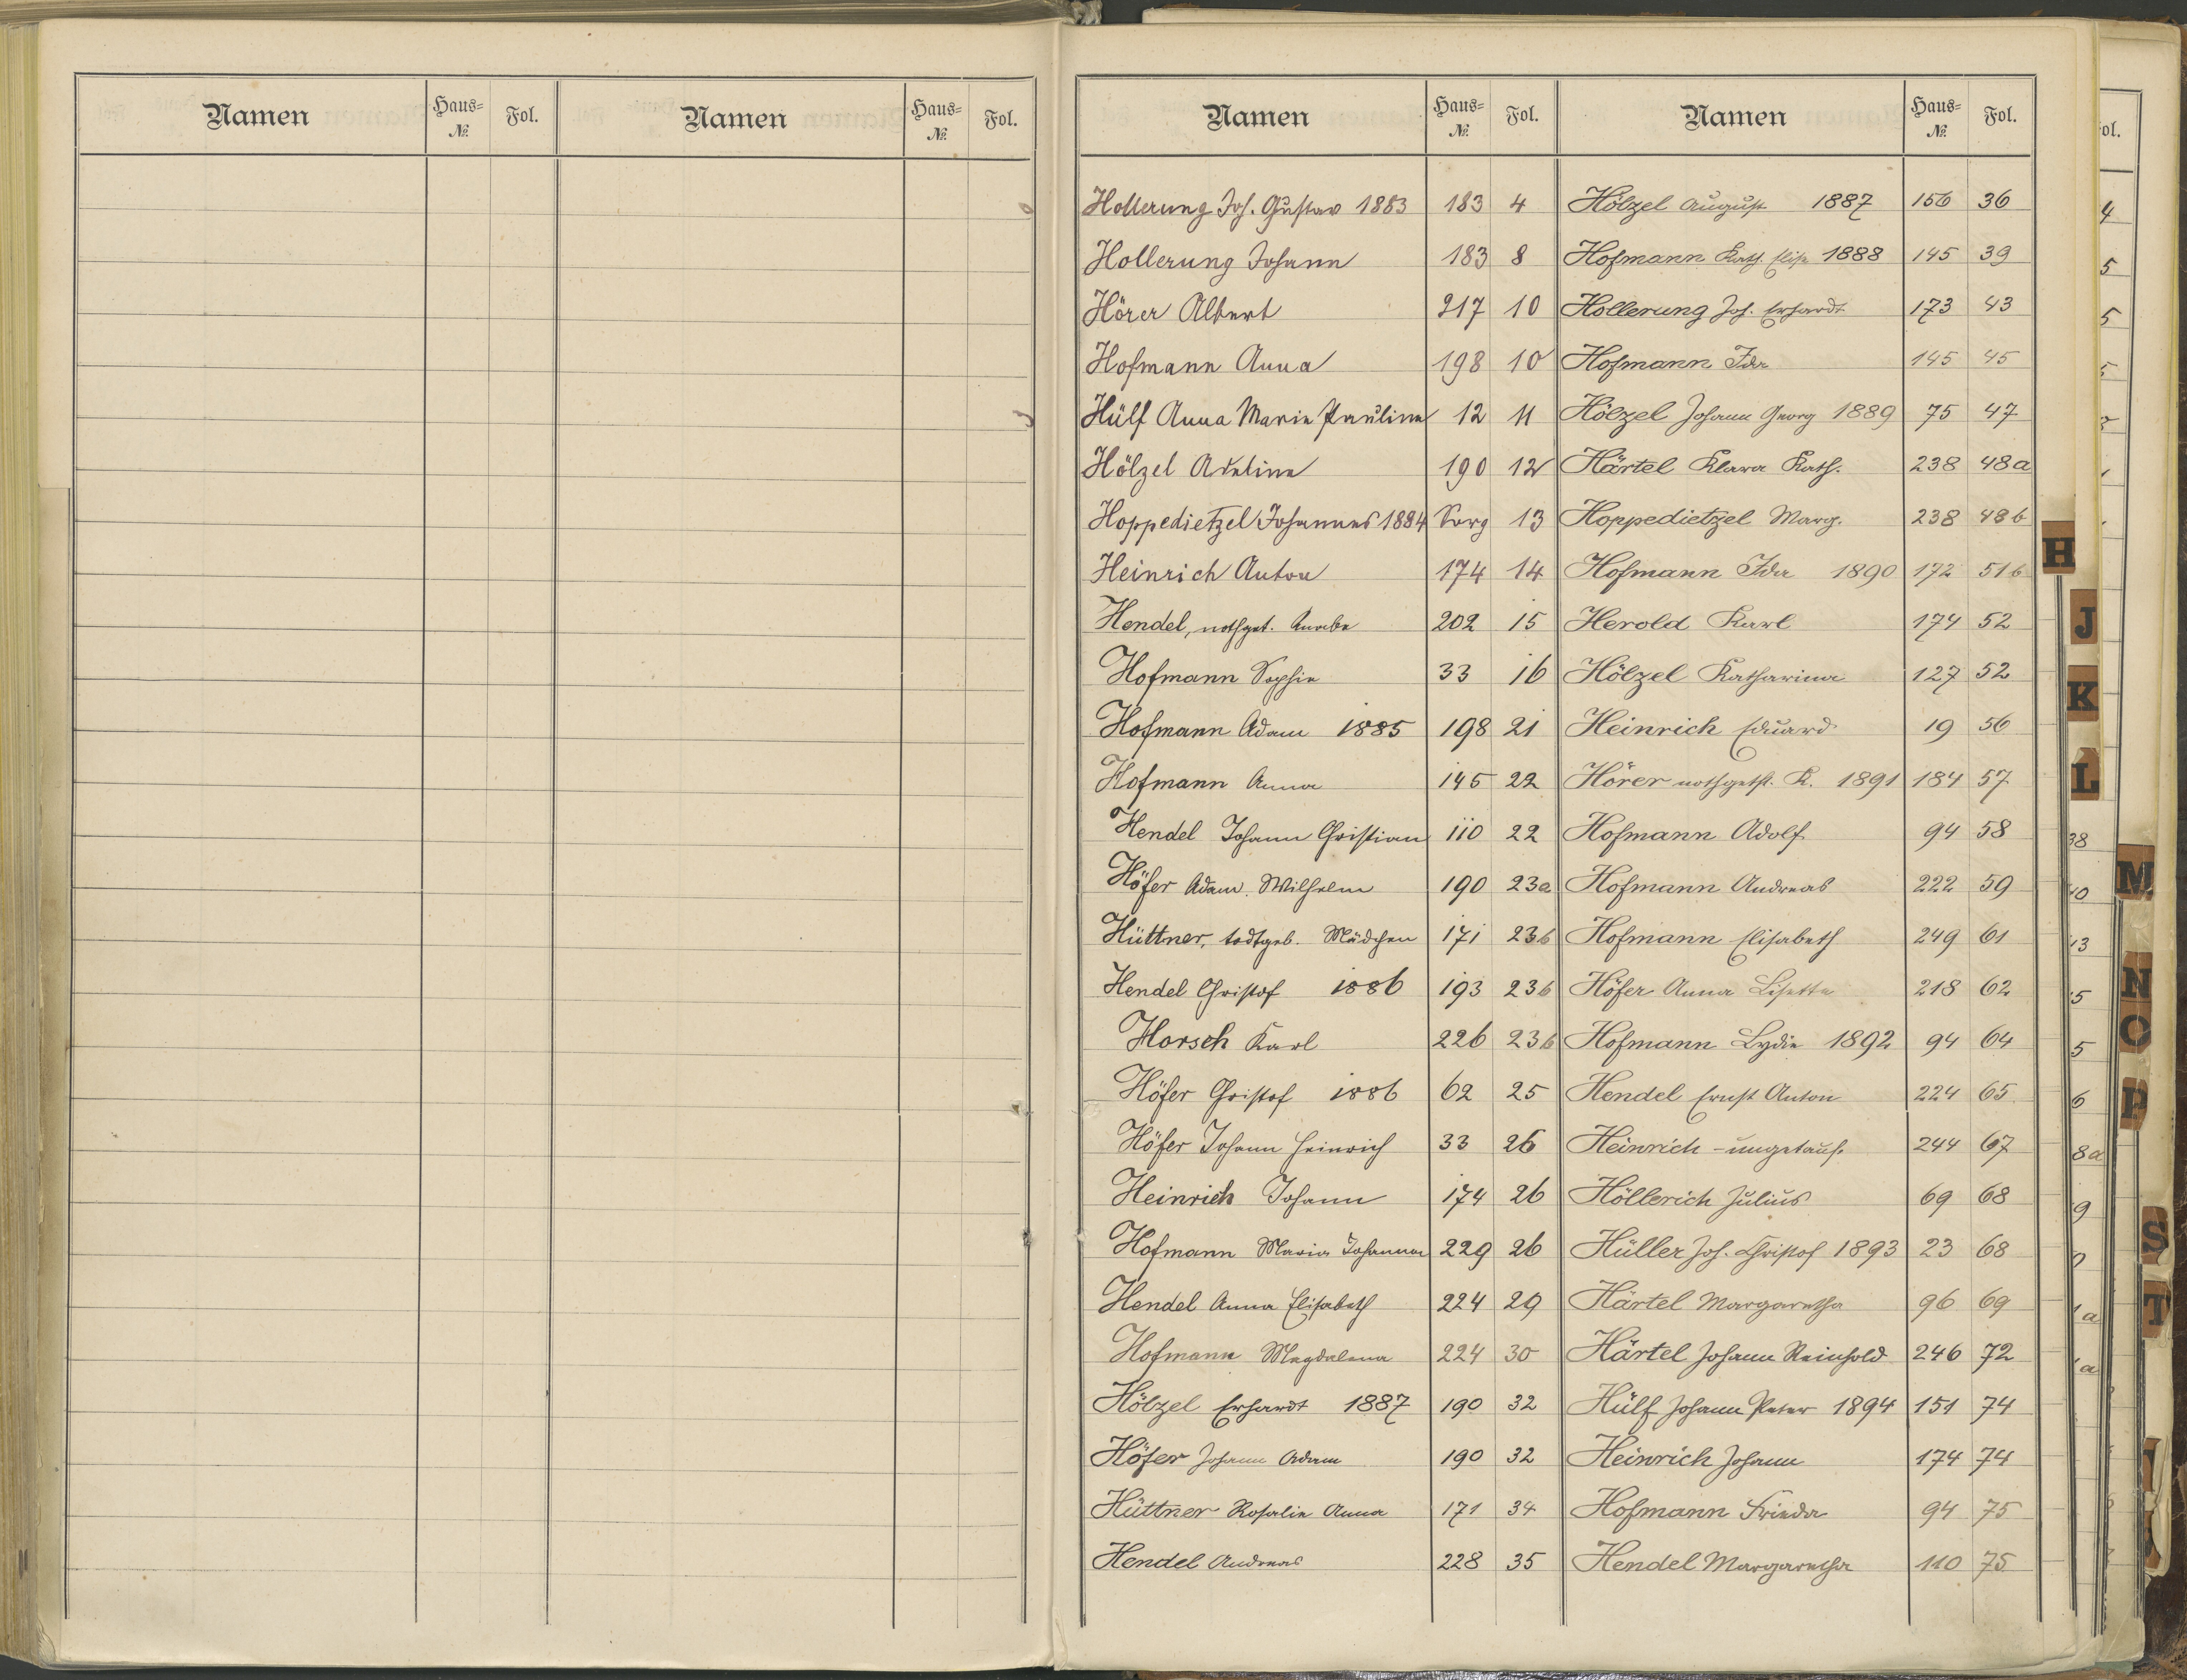 Namen Haus-№ Fol. Namen Haus-№ Fol.
Namen Haus-№ Fol. Namen Haus-№ Fol.
Hollerung Joh. Gustav 1883 183 4
Hollerung Johann 183 8
Hörer Albert 217 10
Hofmann Anna 198 10
Hülf Anna Marie Pauline 12 11
Hölzel Adeline 190 12
Hoppedietzel Johannes 1884 Sorg 13
Heinrich Anton 174 14
Hendel, nothget. Knabe 202 15
Hofmann Sophie 33 16
Hofmann Adam 1885 198 21
Hofmann Anna 145 22
Hendel Johann Christian 110 22
Höfer Adam Wilhelm 190 23a
Hüttner, todtgeb. Mädchen 171 23b
Hendel Christof 1886 193 23b
Horsch Karl 226 23b
Höfer Christof 1886 62 25
Höfer Johann Heinrich 33 26
Heinrich Johann 174 26
Hofmann Maria Johanna 229 26
Hendel Anna Elisabeth 224 29
Hofmann Magdalena 224 30
Hölzel Erhardt 1887 190 32
Höfer Johann Adam 190 32
Hüttner Rosalie Anna 171 34
Hendel Andreas 228 35
Hölzel August 1887 156 36
Hofmann Kath. Elise 1888 145 39
Hollerung Joh. Erhardt 173 43
Hofmann Ida 145 45
Hölzel Johann Georg 1889 75 47
Härtel Klara Kath. 238 48a
Hoppedietzel Marg. 238 48b
Hofmann Ida 1890 172 51b
Herold Karl 174 52
Hölzel Katharina 127 52
Heinrich Eduard 19 56
Hörer nothgetft. K. 1891 184 57
Hofmann Adolf 94 58
Hofmann Andreas 222 59
Hofmann Elisabeth 249 61
Höfer Anna Lisette 218 62
Hofmann Lydie 1892 94 64
Hendel Ernst Anton 224 65
Heinrich - ungetauft. 244 67
Höllerich Julius 69 68
Hüller Joh. Christof 1893 23 68
Härtel Margaretha 96 69
Härtel Johann Reinhold 246 72
Hülf Johann Peter 1894 151 74
Heinrich Johann 174 74
Hofmann Frieda 94 75
Hendel Margaretha 110 75
H
J
K
L
M
N
O
P
S
T